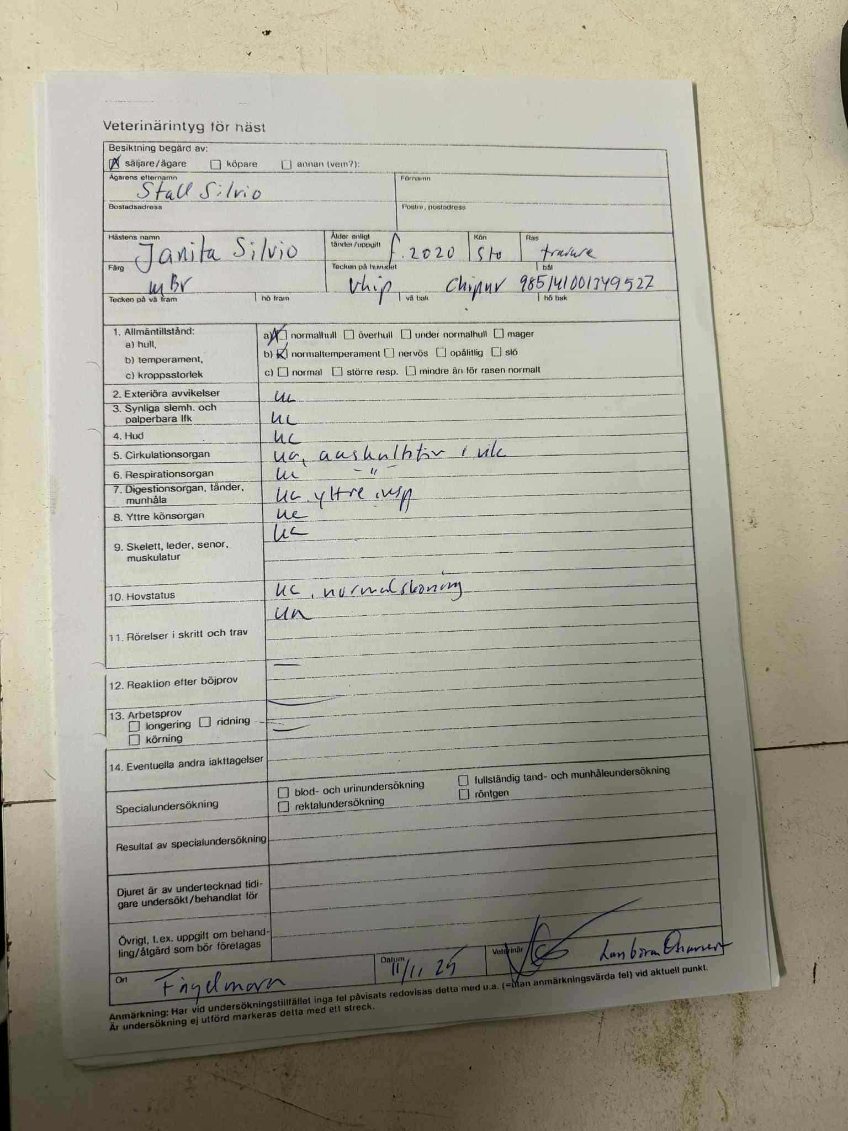 Veterinärintyg för häst
Besiktning begärd av:
säljare/ägare köpare annan (vem?):
Ägarens efternamn Förnamn
Stall Silvio
Bostadsadress Postnr, postadress
Hästens namn Ålder enligt tänder/uppgift Kön Ras
Janita Silvio f. 2020 Sto travare
Färg Tecken på huvudet bål
mBr Chipnr 985141001349527
Tecken på vä fram hö fram vä bak hö bak
1. Allmäntillstånd: a) normalhull överhull under normalhull mager
a) hull,
b) temperament, b) normaltemperament nervös opålitlig slö
c) kroppsstorlek c) normal större resp. mindre än för rasen normalt
2. Exteriöra avvikelser ua
3. Synliga slemh. och
palperbara lfk ua
4. Hud ua
5. Cirkulationsorgan ua, auskulteras i vila
6. Respirationsorgan ua -"-
7. Digestionsorgan, tänder,
munhåla ua yttre insp
8. Yttre könsorgan ua
9. Skelett, leder, senor, ua
muskulatur
10. Hovstatus ua, normalskoning
11. Rörelser i skritt och trav ua
12. Reaktion efter böjprov —
13. Arbetsprov —
longering ridning
körning
14. Eventuella andra iakttagelser
Specialundersökning blod- och urinundersökning fullständig tand- och munhåleundersökning
rektalundersökning röntgen
Resultat av specialundersökning
Djuret är av undertecknad tidi-
gare undersökt/behandlat för
Övrigt, t.ex. uppgift om behand-
ling/åtgärd som bör företagas
Ort Datum Veterinär
11/11 25
Anmärkning: Har vid undersökningstillfället inga fel påvisats redovisas detta med u.a. (=utan anmärkningsvärda fel) vid aktuell punkt.
Är undersökning ej utförd markeras detta med ett streck.